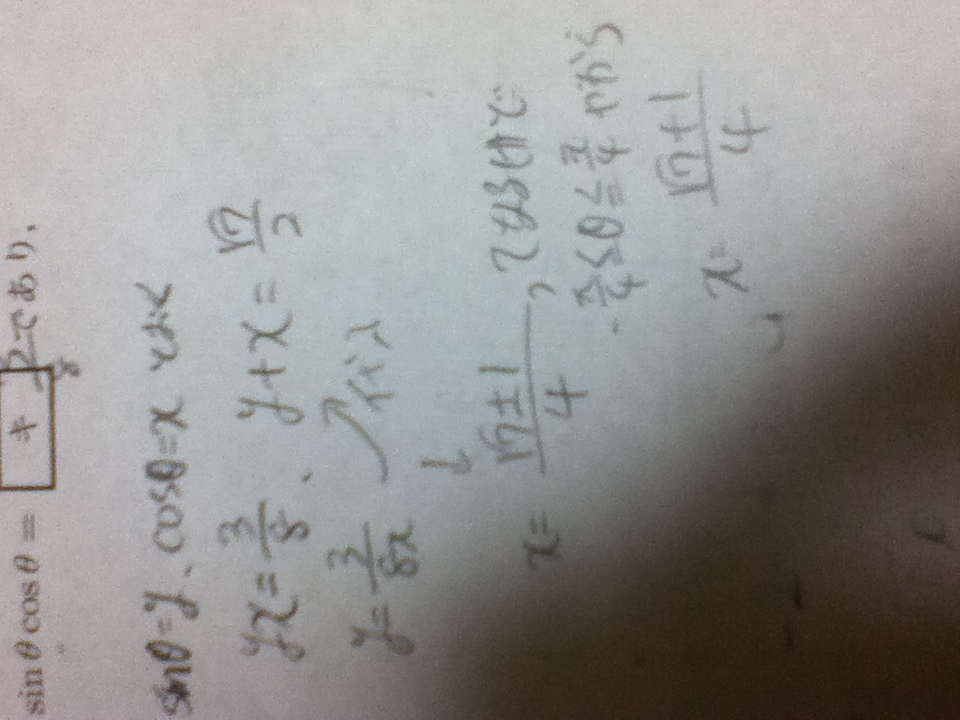 sinθcosθ = キ であり,
3/8
sinθ=y、cosθ=x とおく
yx=3/8 . y+x=√7/2
y=3/8x 代入
↓
x=√7±1/4 , となるけど
-π/4≦θ≦π/4 やから
x=√7+1/4